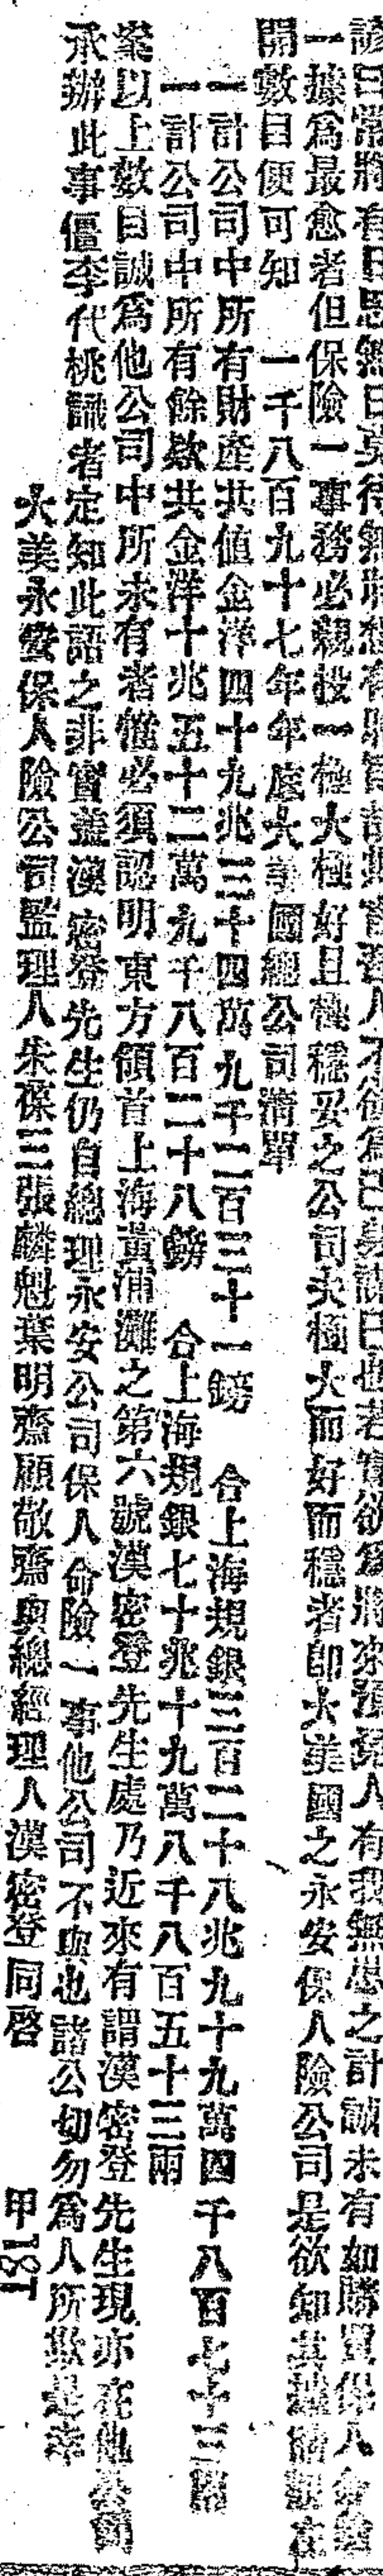 諺曰常將有日思無日莫待無時想有時旨哉斯言吾人不欲爲己身謀已也若實欲爲將來預籌人有我無愚之計誠未有如購買保人命險
一據爲最愈者但保險一事務必親投一極大極好且極穩妥之公司夫極大而好而穩者卽大美國之永安保人險公司是欲知其
開數目便可知　一千八百九十七年年底大美國總公司清單
一計公司中所有財產共值金洋四十九兆三十四萬九千二百三十一鎊　合上海規銀三百二十八兆九十九萬四千八百七十三兩
一計公司中所有餘款共金洋十兆五十二萬九千八百二十八鎊　合上海規銀七十兆十九萬八千八百五十三兩
案以上數目誠爲他公司中所未有者惟必須認明東方領首上海黃浦灘之第六號漢密登先生處乃近來有謂漢密登先生現亦在他公司
承辦此事僵李代桃識者定知此語之非實蓋漢密登先生仍自總理永安公司保人命險一事他公司不與也諸公切勿爲人所欺是幸
大美永安保人險公司監理人朱葆三張麟魁葉明齋顧敬齋與總經理人漢密登同啓　甲181